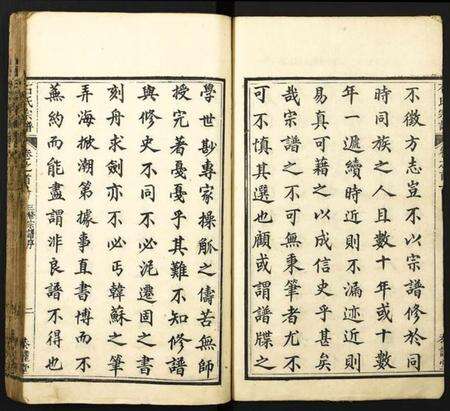 不徵方志豈不以宗譜修於同
時同族之人且數十年或十數
年一遞續時近則不漏迹近則
易真可藉之以成信史乎甚矣
哉宗譜之不可無秉筆者尤不
可不慎其選也顧或謂譜牒之
學世尠專家操觚之儔苦無師
授完著戛戛乎其難不知修譜
與修史不同不必泥遷固之書
刻舟求劍亦不必丐韓蘇之筆
弄海掀潮第據事直書博而不
蕪約而能盡謂非良譜不得也
石氏宗譜
卷之首
三修宗譜序
二